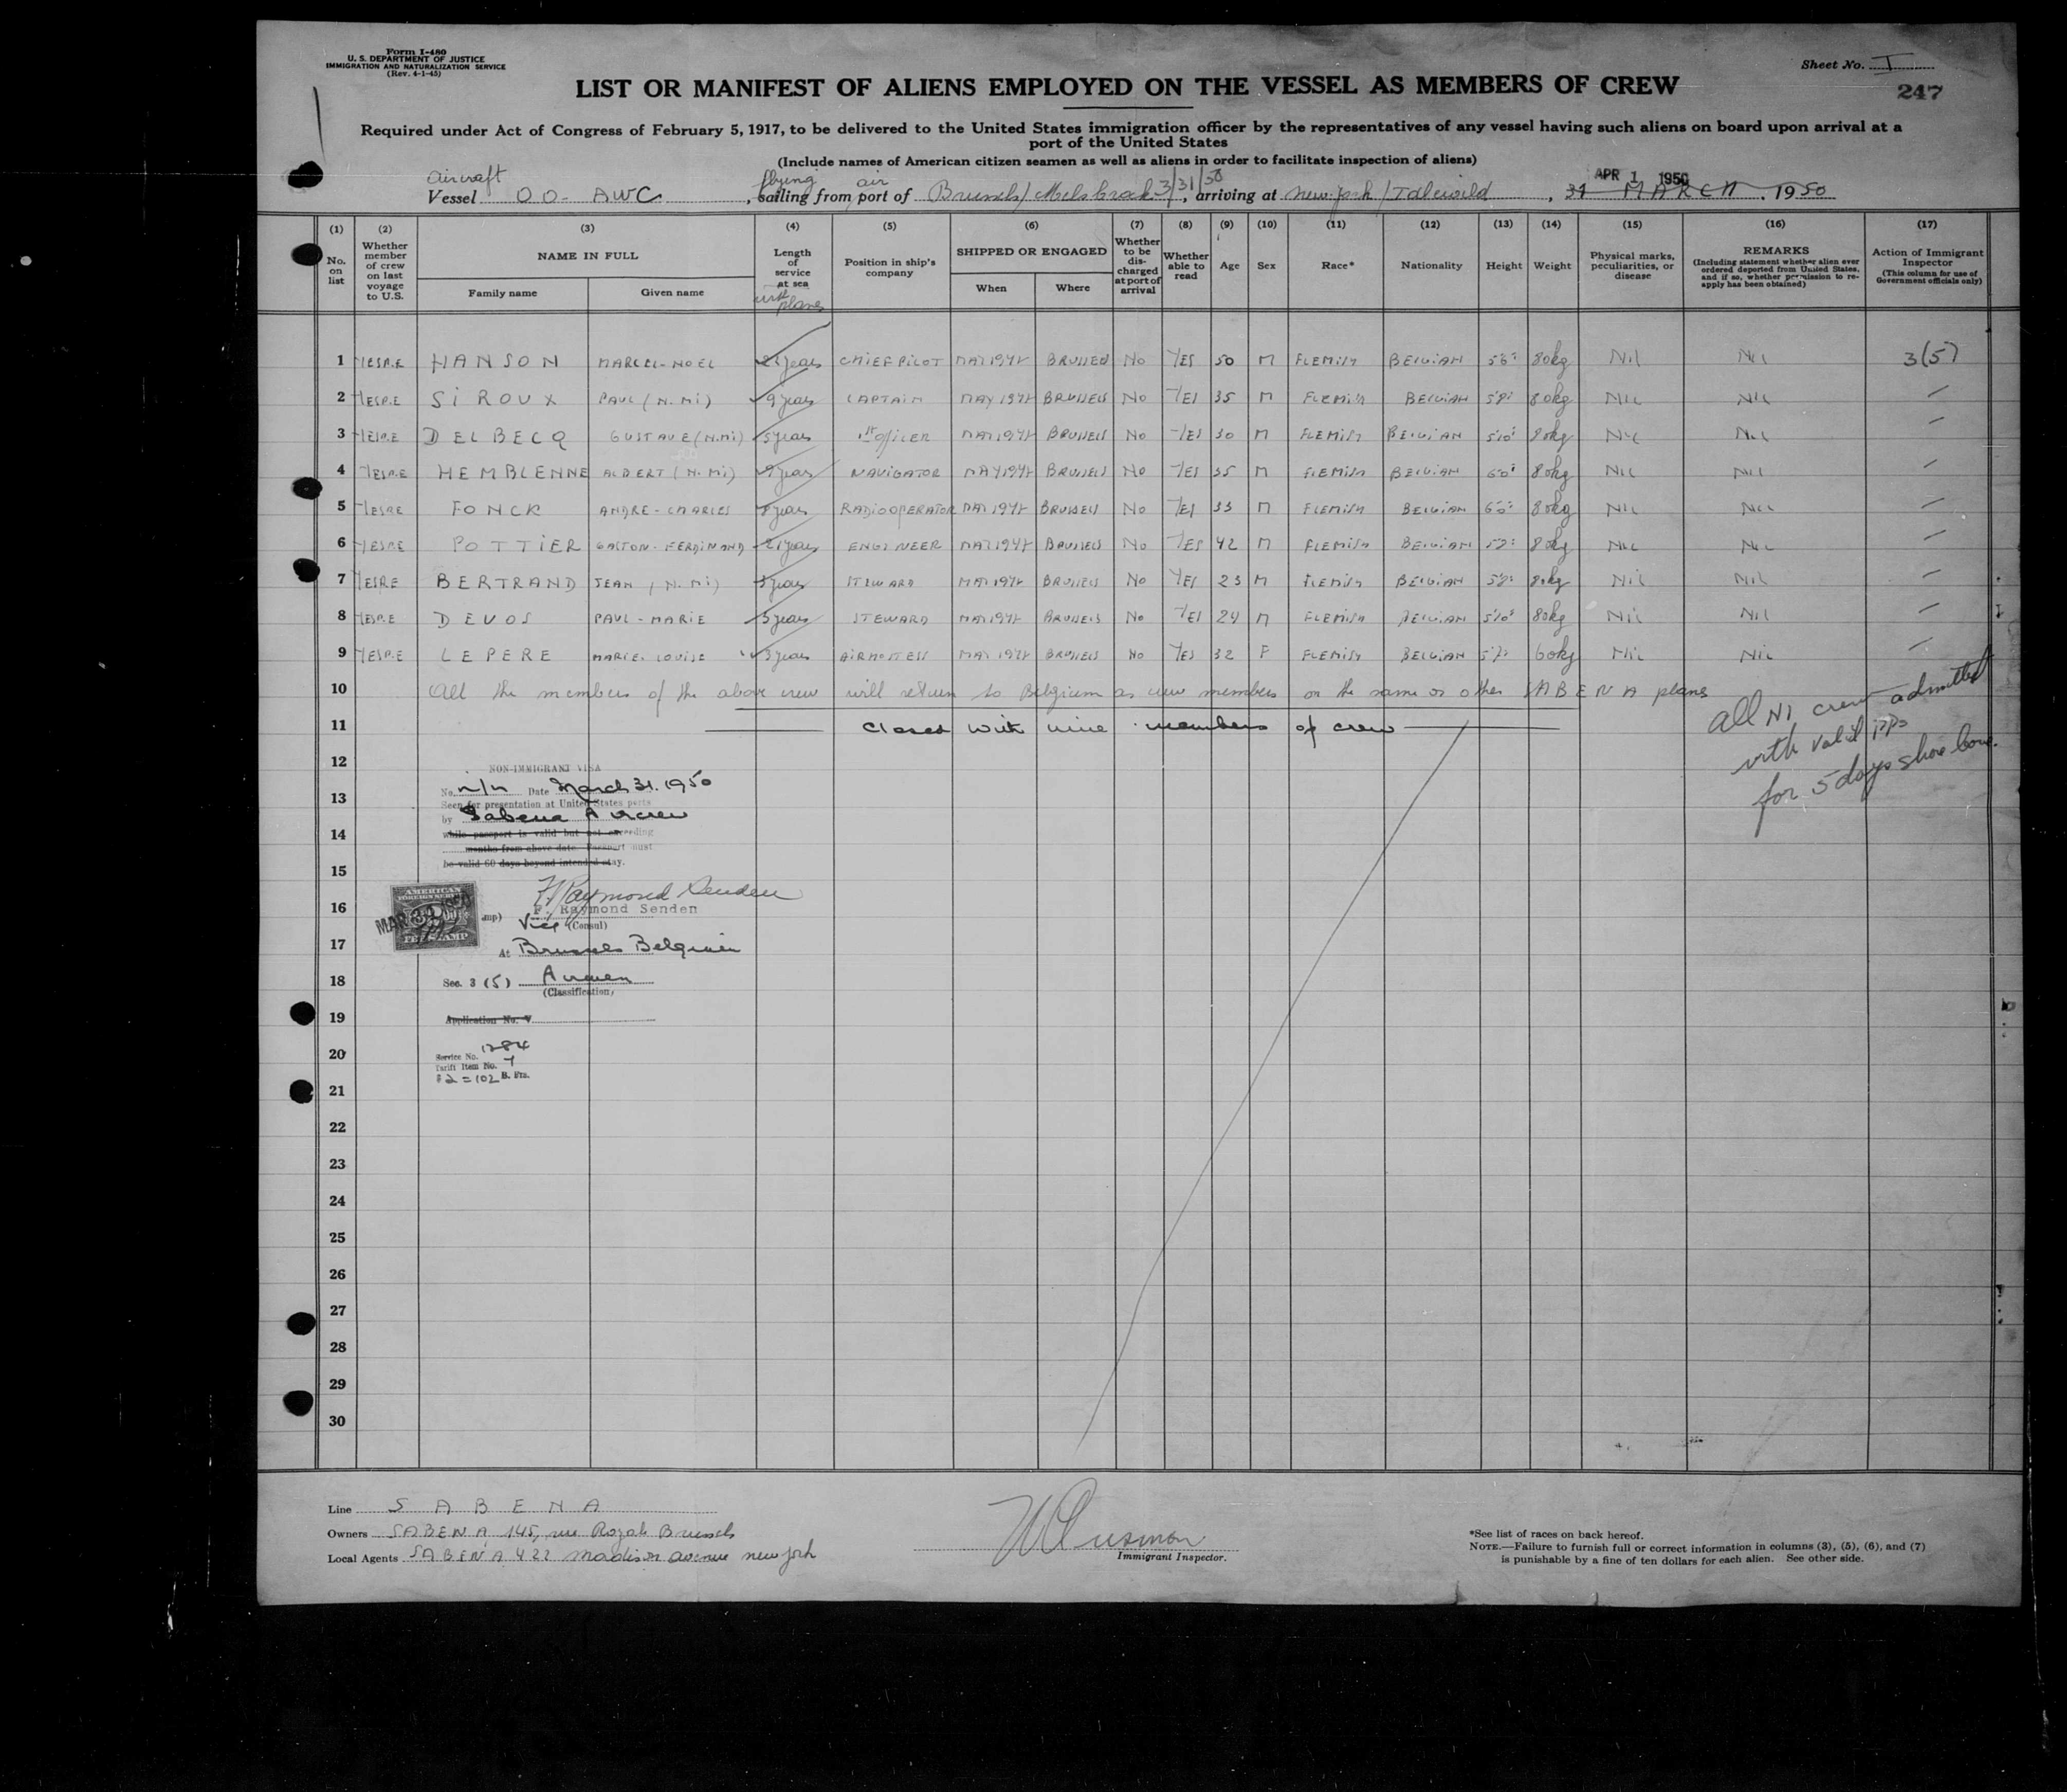 Form I-480
U. S. DEPARTMENT OF JUSTICE
IMMIGRATION AND NATURALIZATION SERVICE
(Rev. 4-1-45)
Sheet No. I
247
LIST OR MANIFEST OF ALIENS EMPLOYED ON THE VESSEL AS MEMBERS OF CREW
Required under Act of Congress of February 5, 1917, to be delivered to the United States immigration officer by the representatives of any vessel having such aliens on board upon arrival at a
port of the United States
(Include names of American citizen seamen as well as aliens in order to facilitate inspection of aliens)
aircraft flying air APR 1 1950
Vessel OO-AWC, sailing from port of Brussels/Melsbroek 3/31/50, arriving at New York/Idlewild, 31 MARCH, 1950
(1) (2) (3) (4) (5) (6) (7) (8) (9) (10) (11) (12) (13) (14) (15) (16) (17)
No. on list
Whether member of crew on last voyage to U.S.
NAME IN FULL
Family name
Given name
Length of service at sea
with planes
Position in ship's company
SHIPPED OR ENGAGED
When
Where
Whether to be discharged at port of arrival
Whether able to read
Age
Sex
Race*
Nationality
Height
Weight
Physical marks, peculiarities, or disease
REMARKS
(Including statement whether alien ever ordered deported from United States, and if so, whether permission to reapply has been obtained)
Action of Immigrant Inspector
(This column for use of Government officials only)
1 HANSON MARCEL-NOEL years CHIEF PILOT BRUSSELS No YES 50 M FLEMISH BELGIAN 80kg Nil Nil 3(5)
2 SIROUX PAUL (N.Mi) 9 years CAPTAIN MAY BRUSSELS No YES 35 M FLEMISH BELGIAN 80kg Nil Nil
3 DELBECQ GUSTAVE (N.Mi) 5 years 1st Officer MAY BRUSSELS No YES 30 M FLEMISH BELGIAN 5'10" 80kg Nil Nil
4 HEMBLENNE ALBERT (N.Mi) 9 years NAVIGATOR MAY BRUSSELS No YES 35 M FLEMISH BELGIAN 6'0" 80kg Nil Nil
5 FONCK ANDRE-CHARLES years RADIOOPERATOR MAY BRUSSELS No YES 33 M FLEMISH BELGIAN 6'0" 80kg Nil Nil
6 POTTIER GASTON-FERDINAND 21 years ENGINEER MAY BRUSSELS No YES 42 M FLEMISH BELGIAN 80kg Nil Nil
7 BERTRAND JEAN (N.Mi) 3 years STEWARD MAY BRUSSELS No YES 23 M FLEMISH BELGIAN 80kg Nil Nil
8 DEVOS PAUL-MARIE 3 years STEWARD MAY BRUSSELS No YES 24 M FLEMISH BELGIAN 5'10" 80kg Nil Nil
9 LEPERE MARIE-LOUISE 3 years AIRHOSTESS MAY BRUSSELS No YES 32 F FLEMISH BELGIAN 60kg Nil Nil
10 All the members of the above crew will return to Belgium as crew members on the same or other SABENA planes
11 Closed with nine members of crew
all N1 crew admitted
with valid pps
for 5 days shore leave.
12
13
14
15
16
17
18
19
20
21
22
23
24
25
26
27
28
29
30
NON-IMMIGRANT VISA
No. n/n Date March 31. 1950
Seen for presentation at United States ports
by Sabena Aircrew
while passport is valid but not exceeding
months from above date. Passport must
be valid 60 days beyond intended stay.
AMERICAN
FOREIGN SERVICE
FEE STAMP
F. Raymond Senden
F. Raymond Senden
Vice (Consul)
At Brussels Belgium
Sec. 3 (5) Airmen
(Classification)
Application No. V
Service No. 1284
Tariff Item No. 7
$2 = 102 B. Frs.
Line SABENA
Owners SABENA, 145, rue Royale Brussels
Local Agents SABENA 422 Madison avenue New York
Immigrant Inspector.
*See list of races on back hereof.
NOTE.—Failure to furnish full or correct information in columns (3), (5), (6), and (7)
is punishable by a fine of ten dollars for each alien. See other side.